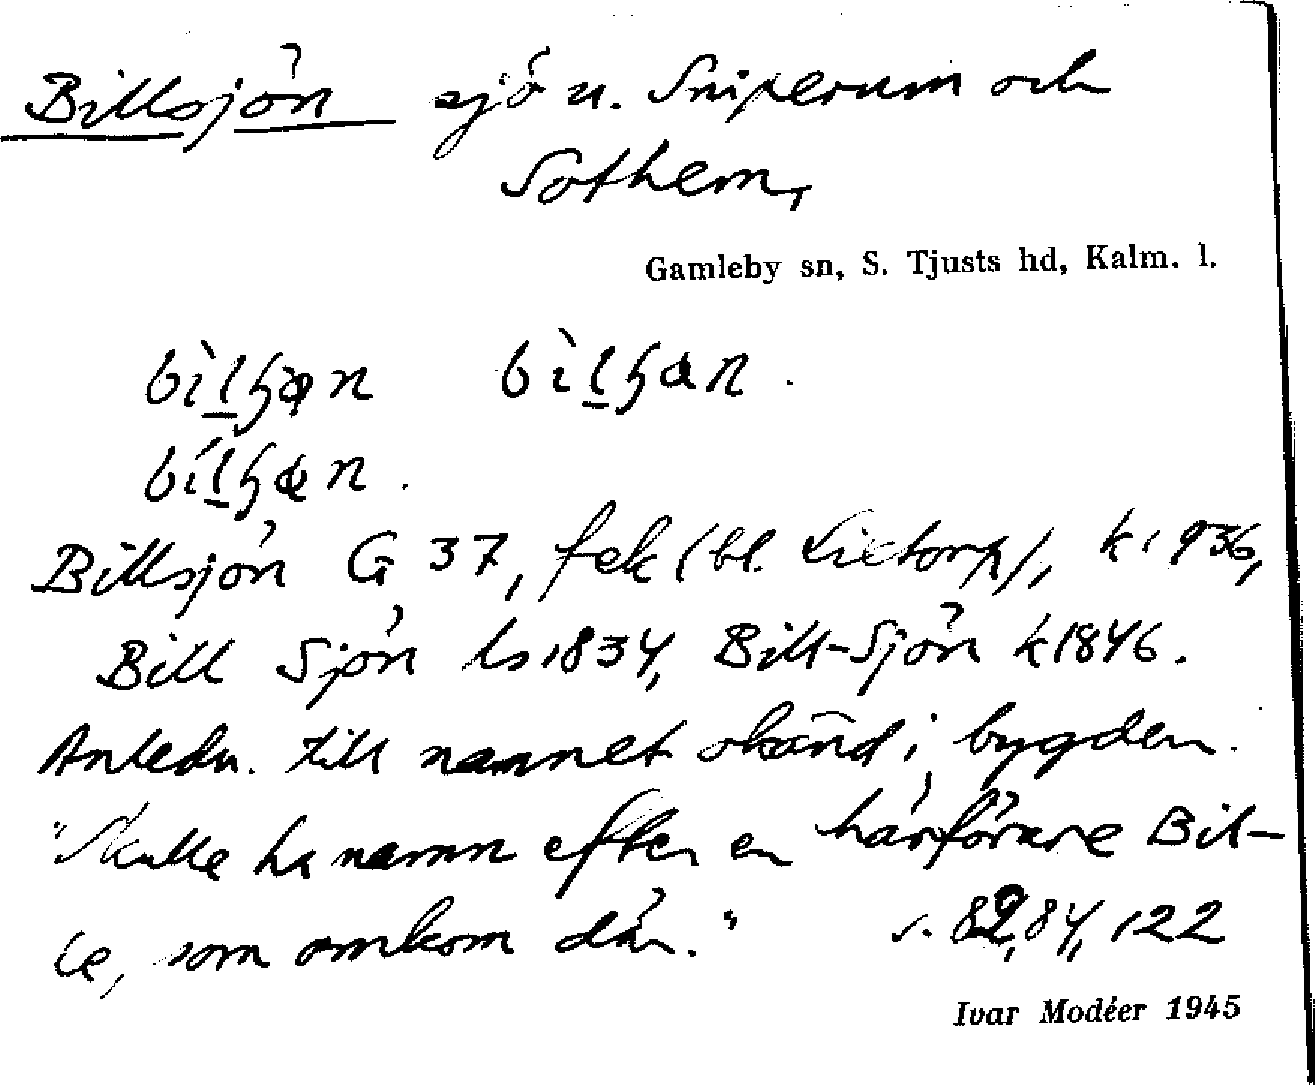 Billsjön sjö u. Sniperum och
Sothem,
Gamleby sn, S. Tjusts hd, Kalm. l.
Billsjön G 37, fek (bl. Lietorp), k 1936,
Bill Sjön ls 1834, Bill-Sjön k 1846.
Anledn. till namnet okänd i bygden.
"Skulle ha namn efter en härförare Bil-
le, som omkom där." s. 82, 84, 122
Ivar Modéer 1945